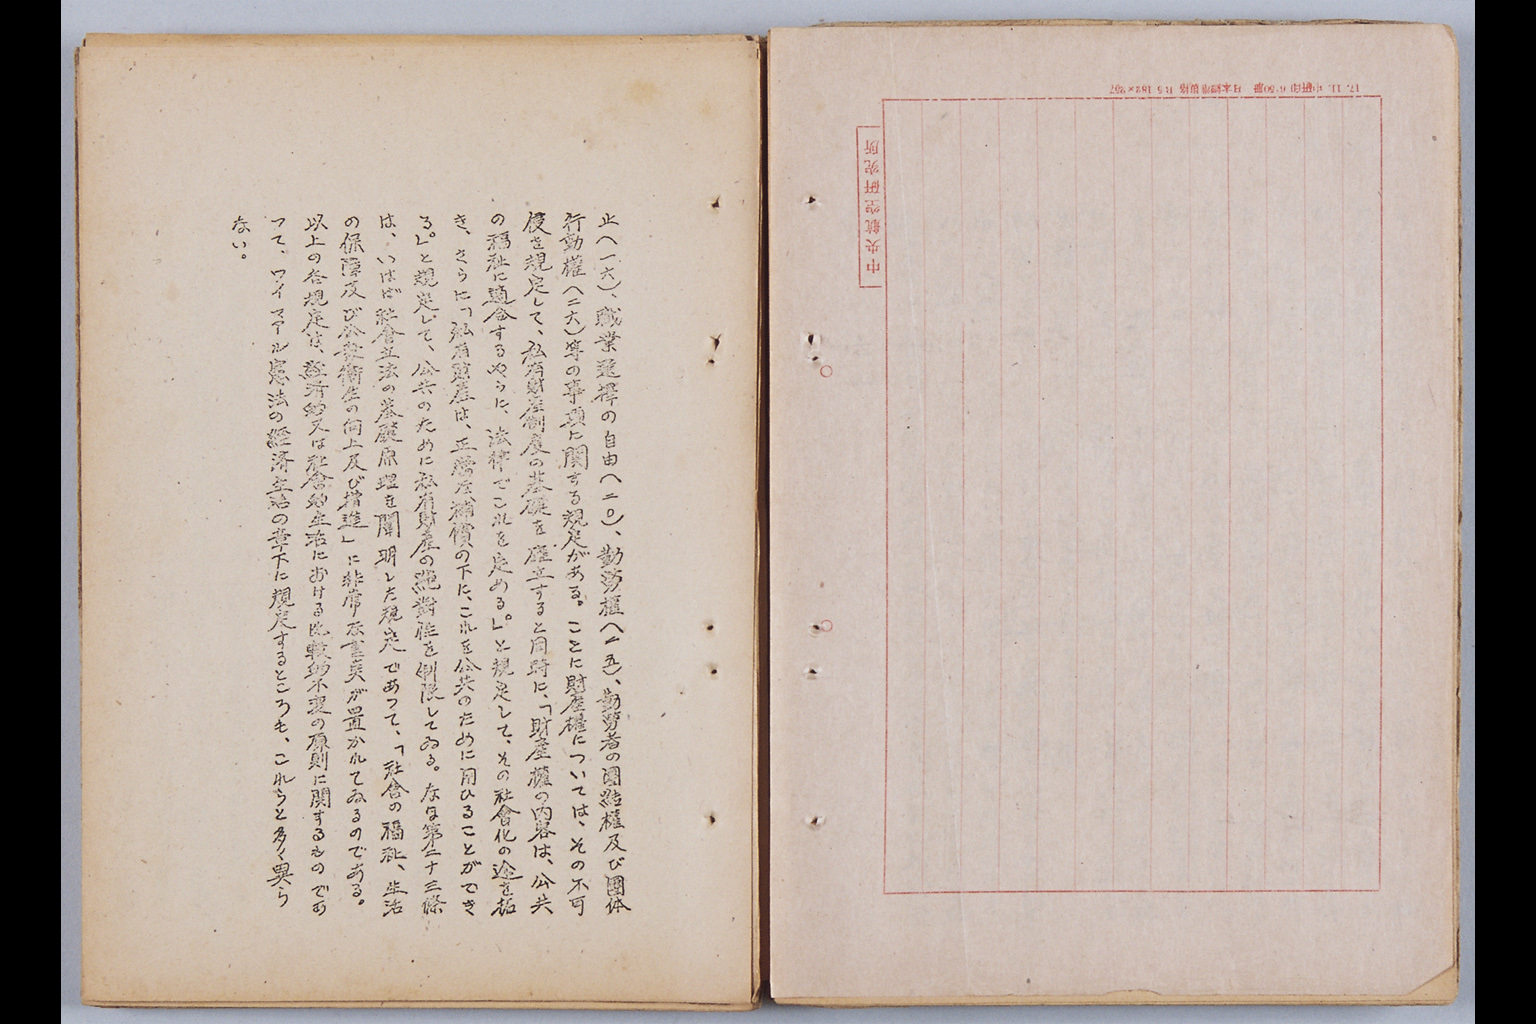 止(一六)、職業選擇の自由(二〇)、勤労權(二五)、勤労者の團結權及び團体
行動權(二六)等の事項に関する規定がある。ことに財産權については、その不可
侵を規定して、私有財産制度の基礎を確立すると同時に、「財産權の内容は、公共
の福祉に適合するやうに、法律でこれを定める。」と規定して、その社會化の途を拓
き、さらに「私有財産は、正當な補償の下に、これを公共のために用ひることができ
る。」と規定して、公共のために私有財産の絶對性を制限してゐる。なほ第二十三條
は、いはば社會立法の基礎原理を闡明した規定であつて、「社會の福祉、生活
の保障及び公衆衛生の向上及び増進」に非常な重点が置かれてゐるのである。
以上の各規定は、経済的又は社會的生活における比較的不変の原則に関するものであ
つて、ワイマアル憲法の経済生活の章下に規定するところも、これらと多く異ら
ない。
中央航空研究所
17.11.中研印 6.50冊 日本標準規格 B5 182×257